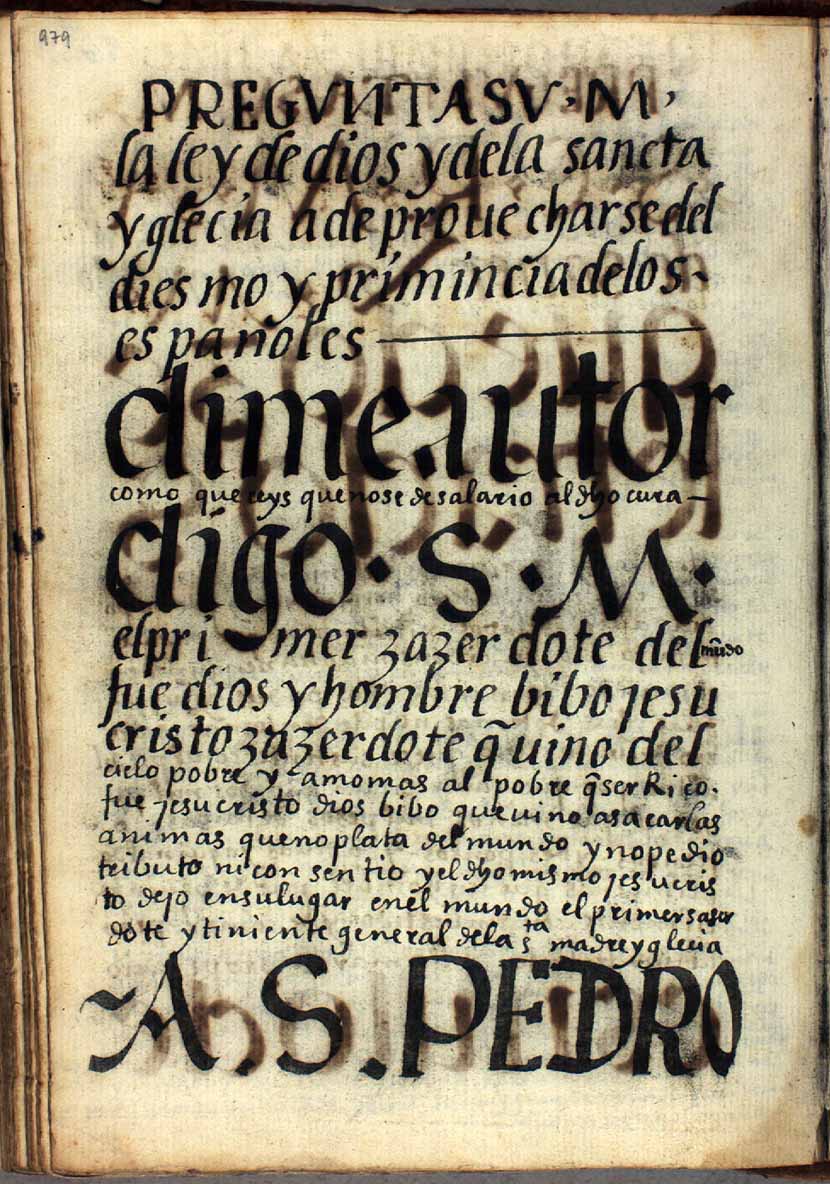 979
PREGVNTA SV · M ·
la ley de dios y de la sancta
yglecia a de prouecharse del
diesmo y primincia de los
españoles
dime autor
como quereys que no se de salario al dho cura
digo · S · M ·
el primer zazerdote del mũdo
fue dios y hombre bibo jesu
cristo zazerdote q̃ uino del
cielo pobre y amo mas al pobre q̃ ser Rico ·
fue jesucristo dios bibo que uino a sacar las
animas que no plata del mundo y no pedio
tributo ni consentio y el dho mismo jesucris
to dejo en su lugar en el mundo el primer saser
dote y tiniente general de la s^ta madre yglecia
A · S · PEDRO